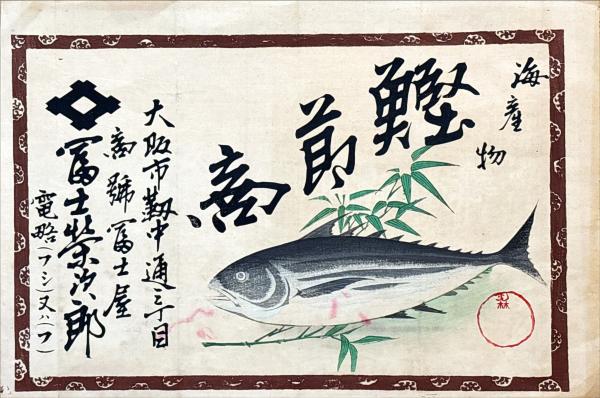 海産物
鰹節商
大阪市靱中通三丁目
商號冨士屋
冨士榮次郎
電略(フシ)又ハ(フ)